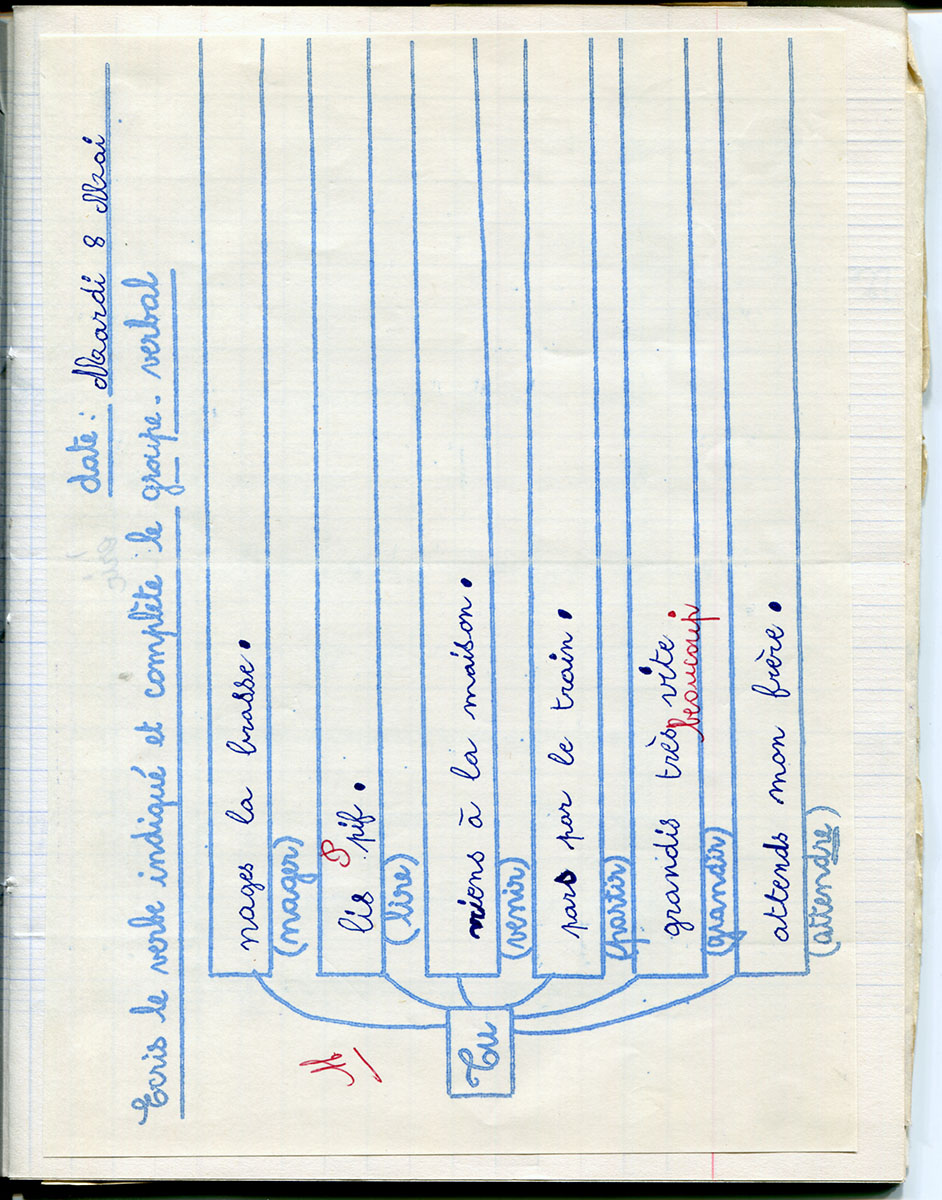 date : Mardi 8 Mai
Ecris le verbe indiqué et complète le groupe-verbal
Tu
nages la brasse.
(nager)
P
lis pif.
(lire)
viens à la maison.
(venir)
pars par le train.
(partir)
grandis très vite.
beaucoup
(grandir)
attends mon frère.
(attendre)